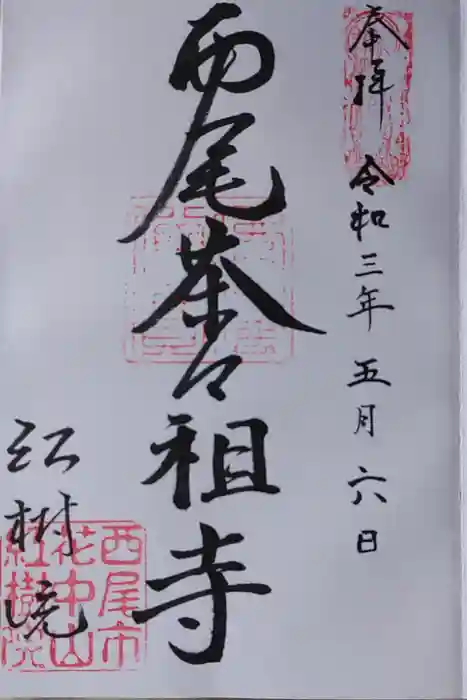 奉拝 令和三年五月六日
西尾茶之祖寺
紅樹院
西尾市
花中山
紅樹院